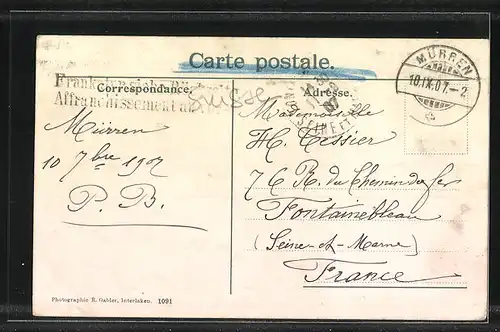 Carte postale.
Correspondance.
Adresse.
Affranchissement
SUISSE
MÜRREN
10.IX.07.-2
07
Mürren
10 7bre 1907
P. B.
Mademoiselle
H. Tessier
76 R. du Chemin de fer
Fontainebleau
(Seine-et-Marne)
France
Photographie R. Gabler, Interlaken. 1091